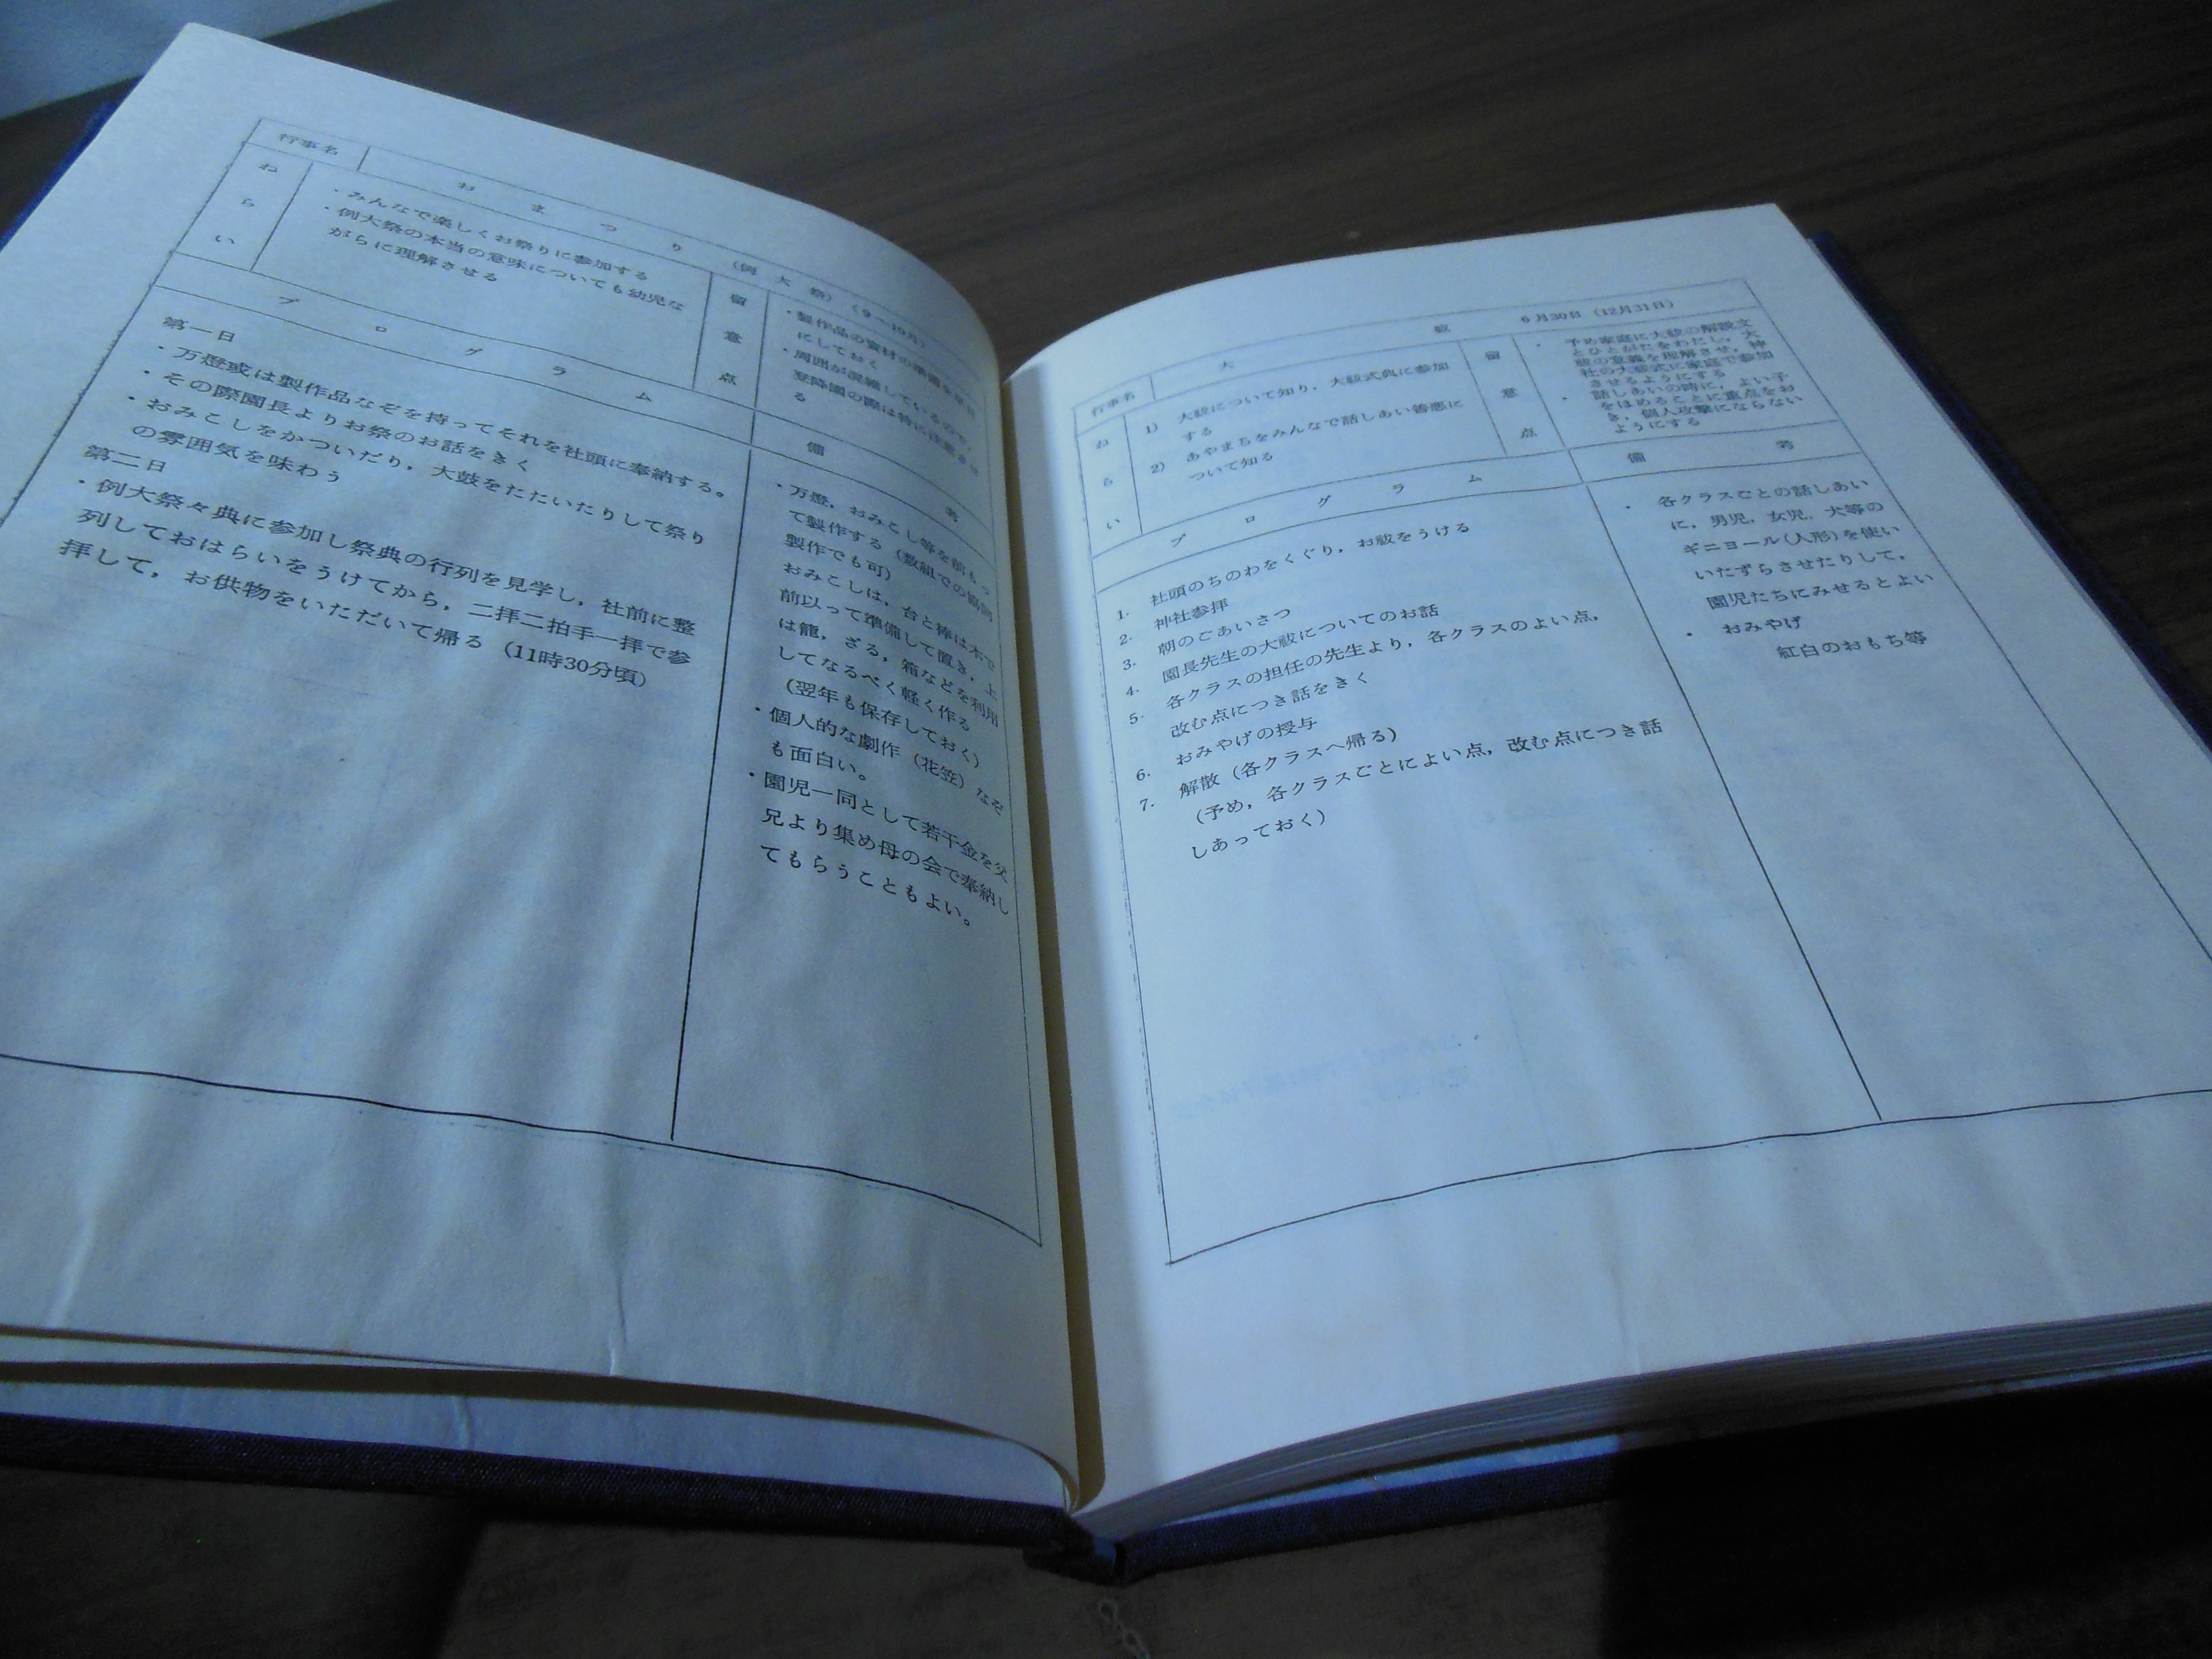 行事名 おまつり (例大祭) (9〜10月)
ねらい
・みんなで楽しくお祭りに参加する
・例大祭の本当の意味についても幼児な
がらに理解させる
留意点
・製作品の資材の準備を
にしておく
・周囲が混雑しているので,
登降園の際は特に注意させ
る
プログラム
備考
第一日
・万燈或は製作品なぞを持ってそれを社頭に奉納する。
・その際園長よりお祭のお話をきく
・おみこしをかついだり,大鼓をただいたりして祭り
の雰囲気を味わう
第二日
・例大祭々典に参加し祭典の行列を見学し,社前に整
列しておはらいをうけてから,二拝二拍手一拝で参
拝して,お供物をいただいて帰る (11時30分頃)
・万燈,おみこし等を前もっ
て製作する (数組での協同
製作でも可)
おみこしは,台と棒は木で
前以って準備して置き,上
は籠,ざる,箱などを利用
してなるべく軽く作る
(翌年も保存しておく)
・個人的な劇作 (花笠) なぞ
も面白い。
・園児一同として若干金を父
兄より集め母の会で奉納し
てもらうこともよい。
行事名 大祓 6月30日 (12月31日)
ねらい
1) 大祓について知り,大祓式典に参加
する
2) あやまちをみんなで話しあい善悪に
ついて知る
留意点
・予め家庭に大祓の解説文
とひとがたをわたし,大
祓の意義を理解させ,神
社の大祓式に家庭で参加
させるようにする
・話しあいの時に,よい子
をほめることに重点をお
き,個人攻撃にならない
ようにする
プログラム
備考
1. 社頭のちのわをくぐり,お祓をうける
2. 神社参拝
3. 朝のごあいさつ
4. 園長先生の大祓についてのお話
5. 各クラスの担任の先生より,各クラスのよい点,
改む点につき話をきく
6. おみやげの授与
7. 解散 (各クラスへ帰る)
(予め,各クラスごとによい点,改む点につき話
しあっておく)
・各クラスごとの話しあい
に,男児,女児,犬等の
ギニヨール(人形)を使い
いたずらさせたりして,
園児たちにみせるとよい
・おみやげ
紅白のおもち等